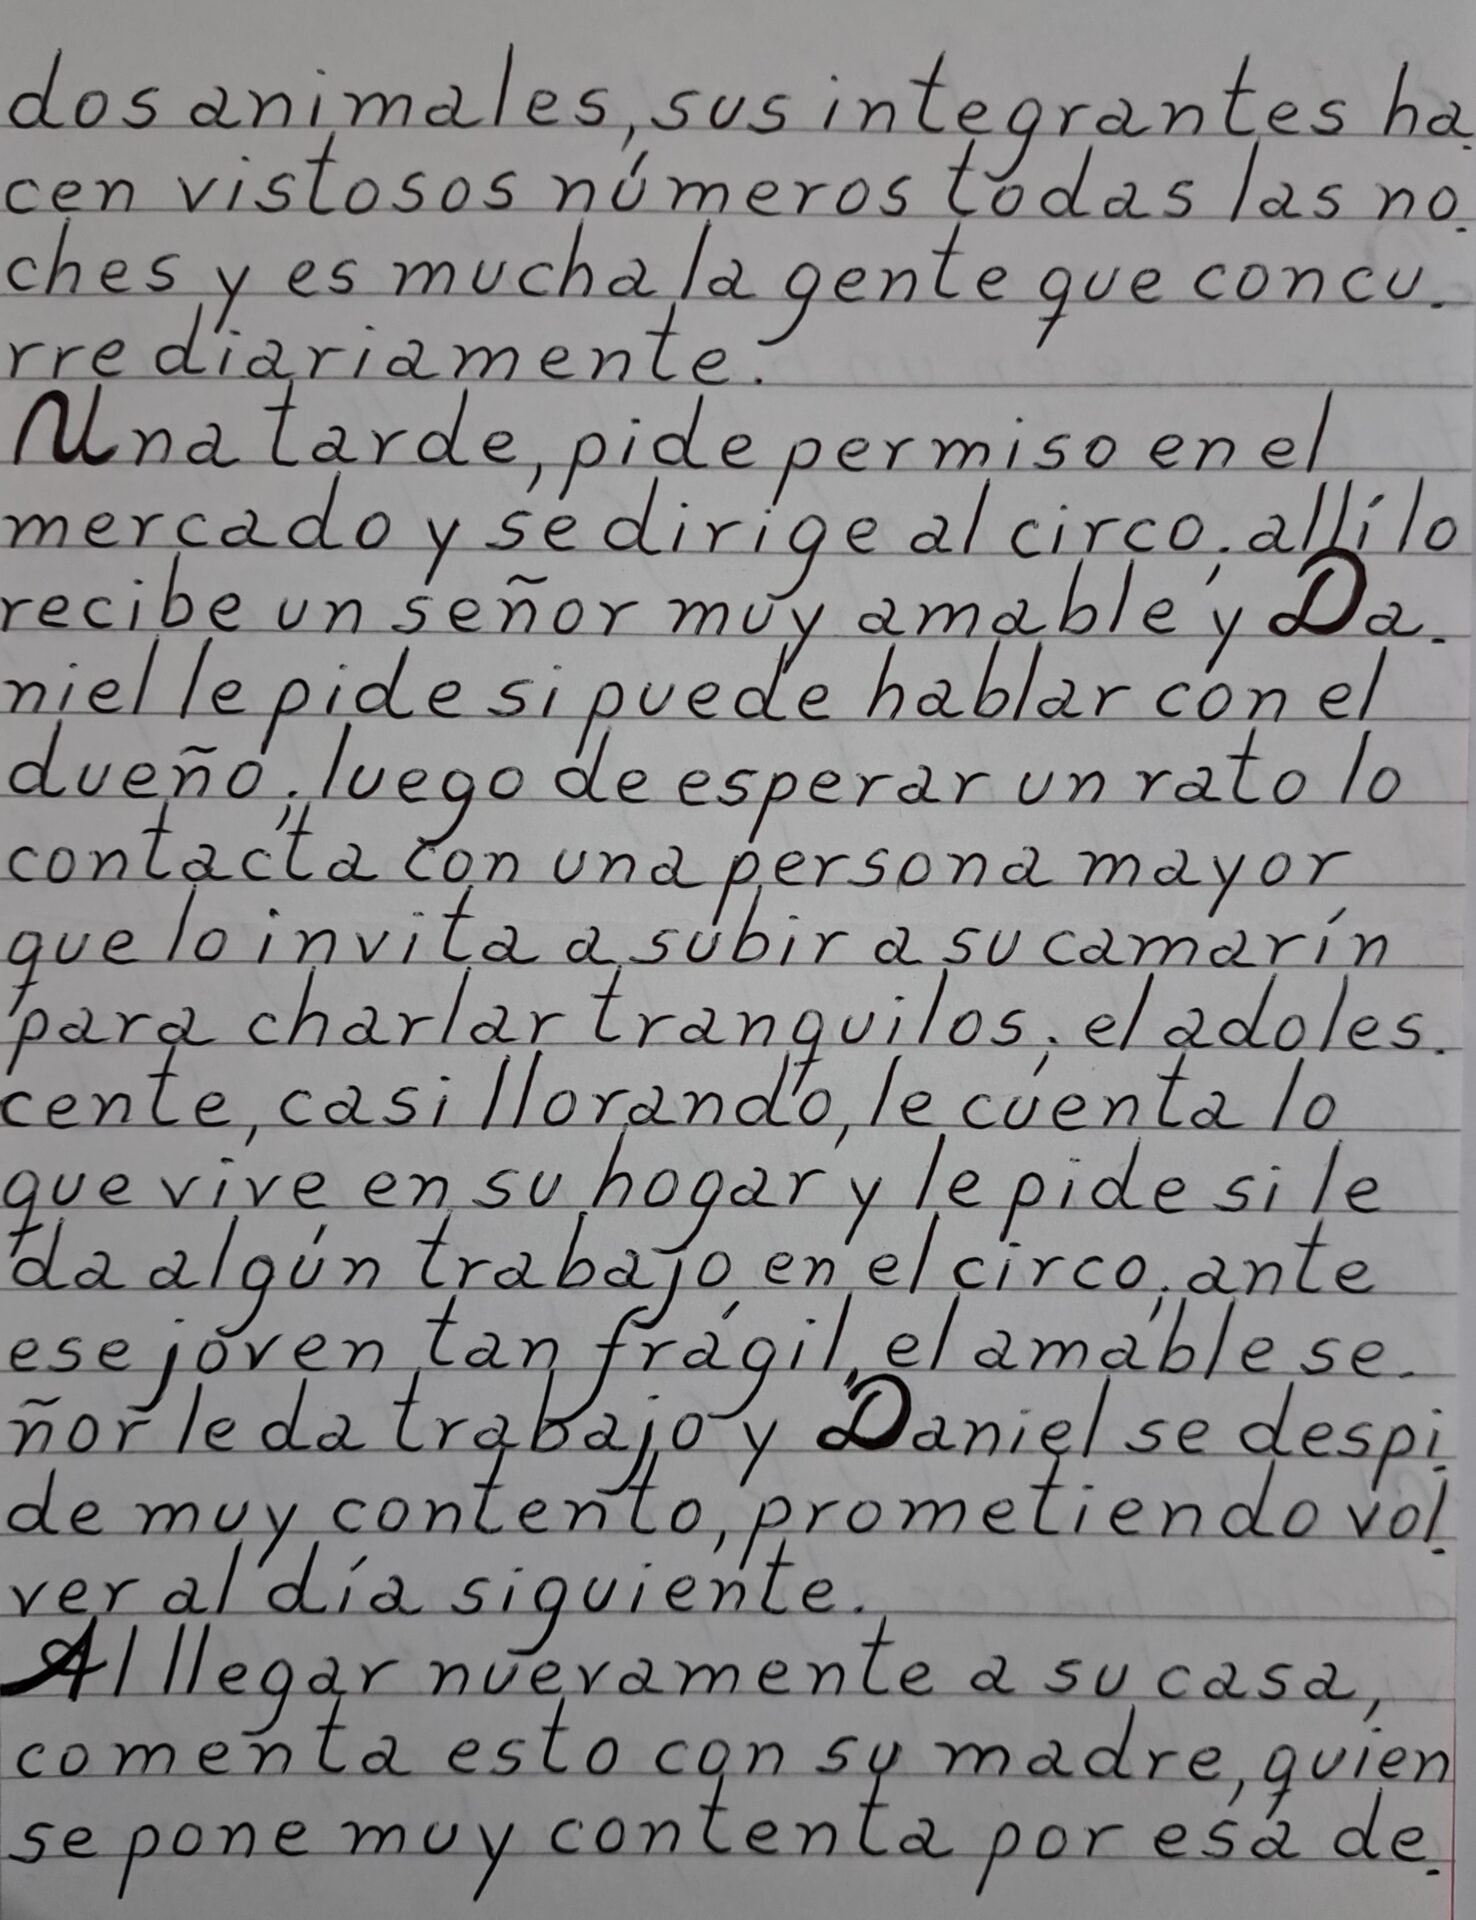 dos animales, sus integrantes ha.
cen vistosos números todas las no.
ches y es mucha la gente que concu.
rre diariamente.
Una tarde, pide permiso en el
mercado y se dirige al circo; allí lo
recibe un señor muy amable y Da.
niel le pide si puede hablar con el
dueño; luego de esperar un rato lo
contacta con una persona mayor
que lo invita a subir a su camarín
para charlar tranquilos; el adoles.
cente, casi llorando, le cuenta lo
que vive en su hogar y le pide si le
da algún trabajo en el circo; ante
ese joven tan frágil, el amable se.
ñor le da trabajo y Daniel se despi.
de muy contento, prometiendo vol.
ver al día siguiente.
Al llegar nuevamente a su casa,
comenta esto con su madre, quien
se pone muy contenta por esa de.